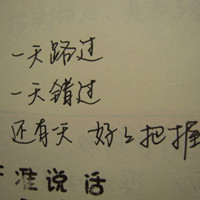 一天路过
一天错过
还有天 好好把握
准说话